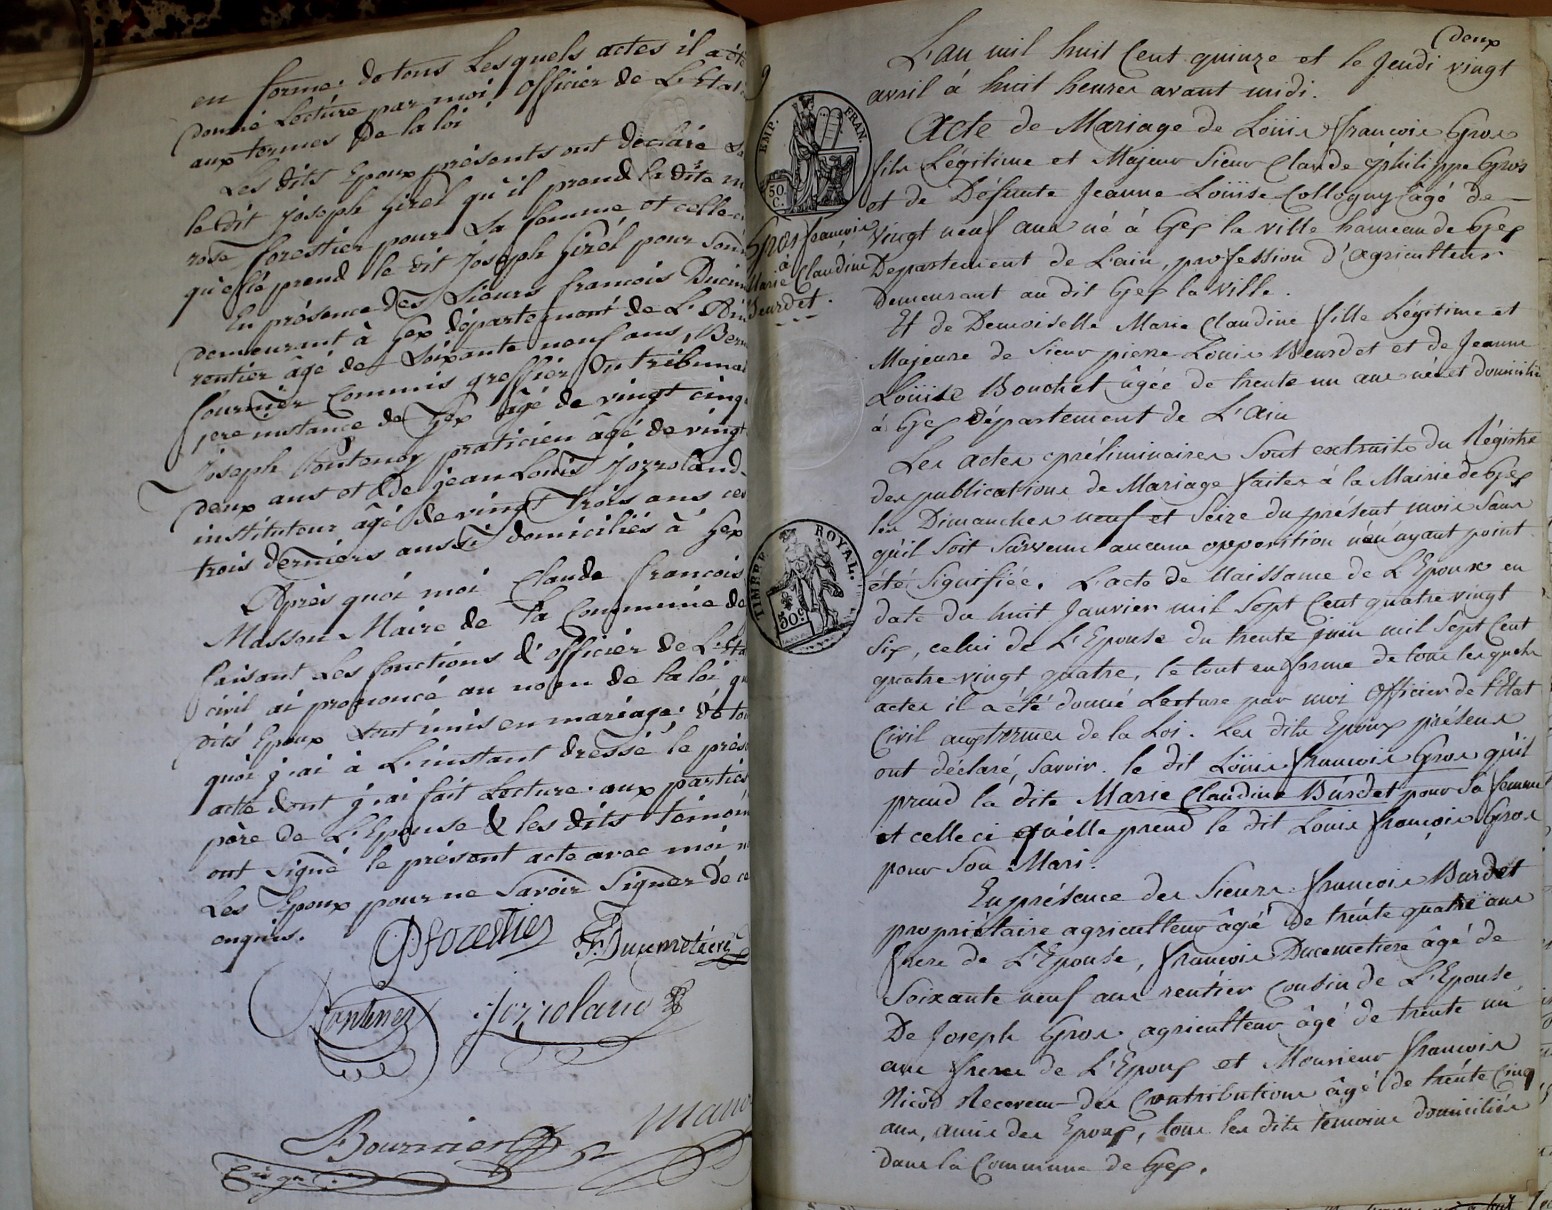 en forme. de tous Lesquels actes il a été
donné Lecture par moi Officier de L'Etat
aux termes de la loi
Les dits Epoux présents ont declaré Sa
le dit Joseph Girel qu'il prend la dite m
rose forestier pour Sa femme et celle ci
qu'elle prend le dit Joseph Girel pour Son
En présence des Sieurs francois Ducim
demeurant à Gex département de L'Ain
rentier âgé de Soixante neuf ans, Bern
fournier Commis greffier du tribunal
1ere instance de Gex âgé de vingt cinq
Joseph fontenoy praticien âgé de vingt
deux ans et de jean Louis Jozzoland
instituteur âgé de vingt trois ans ces
trois derniers aussi domiciliés à Gex
Après quoi moi Claude francois
Masson Maire de la Commune de
faisant Les fonctions d'officier de L'Eta
civil ai prononcé au nom de la loi qu
dits Epoux Sont unis en mariage: de to
quoi j'ai à L'instant dressé le prés
acte dont j'ai fait Lecture aux parties
père de L'Epouse & les dits témoin
ont signé le présent acte avec moi n
Les Epoux pour ne Savoir Signer de ce
enquis.
forestier F. Ducimetière
fontenoy Jozzoland
Bournier
EMP. FRAN.
50. C.
Gros francois
à
Marie Claudine
Burdet.
TIMBRE ROYAL.
50 c
deux
L'an mil huit Cent quinze et le Jeudi vingt
avril à huit heures avant midi.
Acte de Mariage de Louis francois Gros
fils Légitime et Majeur Sieur Claude philippe Gros
et de Défunte Jeanne Louise Collogny âgé de
vingt neuf ans né à Gex la ville hameau de Gex
Departement de L'ain, profession d'agriculteur
Demeurant au dit Gex la ville.
Et de Demoiselle Marie Claudine fille Légitime et
Majeure de Sieur pierre Louis Burdet et de Jeanne
Louise Bouchet âgée de trente un ans née et domicilié
à Gex Département de L'Ain
Les actes préliminaires Sont extraits du Régistre
des publications de Mariage faites à la Mairie de Gex
les Dimanches neuf et Seize du présent mois Sans
qu'il Soit Survenu aucune opposition n'en ayant point
été Signifiée. L'acte de Naissance de L'Epoux en
date du huit Janvier mil Sept Cent quatre vingt
Six, celui de L'Epouse du trente juin mil Sept Cent
quatre vingt quatre, le tout en forme de tous lesquels
actes il a été donné Lecture par moi Officier de l'Etat
Civil aux termes de la Loi. Les dits Epoux présens
ont déclaré, Savoir. le dit Louis francois Gros qu'il
prend la dite Marie Claudine Burdet pour Sa femme
et celle ci qu'elle prend le dit Louis françois Gros
pour Son Mari.
En présence des Sieurs francois Burdet
propriétaire agriculteur âgé de trente quatre ans
frere de L'Epouse, françois Ducemetiere âgé de
Soixante neuf ans rentier Cousin de L'Epouse
De Joseph Gros agriculteur âgé de trente un
ans frere de L'Epoux et Monsieur francois
Nicod Receveur des Contributions âgé de trente Cinq
ans, amis des Epoux, tous les dits témoins domiciliés
dans la Commune de Gex.